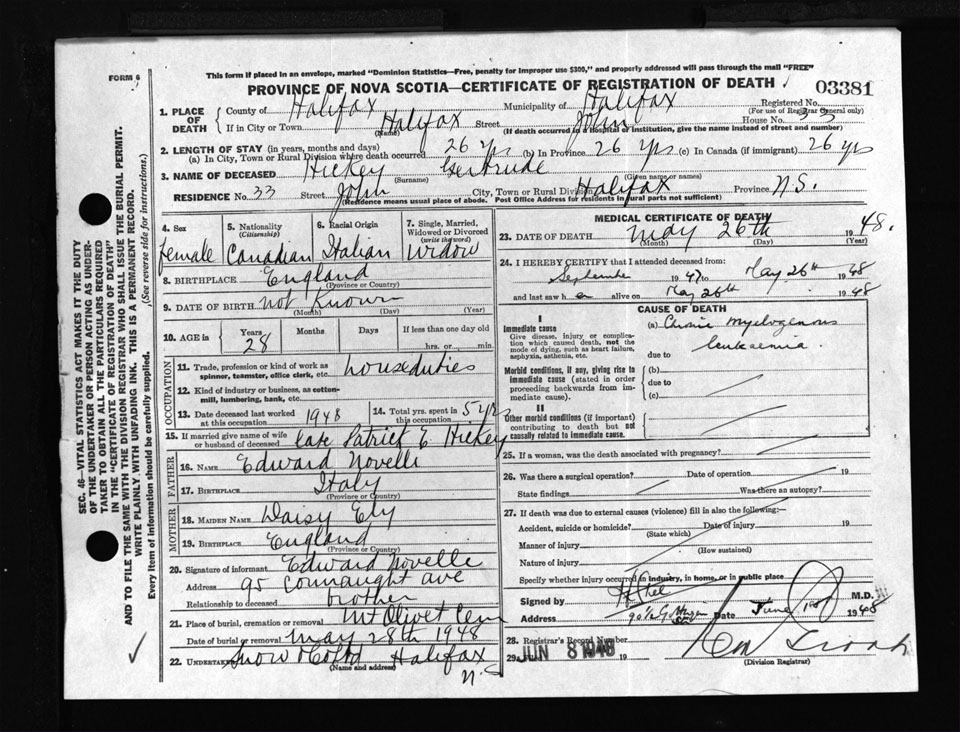 FORM 6
This form if placed in an envelope, marked "Dominion Statistics—Free, penalty for improper use $300," and properly addressed will pass through the mail "FREE"
PROVINCE OF NOVA SCOTIA—CERTIFICATE OF REGISTRATION OF DEATH
03381
1. PLACE OF DEATH
County of Halifax Municipality of Halifax Registered No.
(For use of Registrar General only)
If in City or Town Halifax Street John House No. 33
(Name) (If death occurred in a hospital or institution, give the name instead of street and number)
2. LENGTH OF STAY (in years, months and days)
(a) In City, Town or Rural Division where death occurred 26 yrs (b) In Province 26 yrs (c) In Canada (if immigrant) 26 yrs
3. NAME OF DECEASED Hickey Gertrude
(Surname) (Given name or names)
RESIDENCE No. 33 Street John City, Town or Rural Division Halifax Province N.S.
(Residence means usual place of abode. Post Office Address for residents in rural parts not sufficient)
4. Sex female
5. Nationality (Citizenship) Canadian
6. Racial Origin Italian
7. Single, Married, Widowed or Divorced (write the word) Widow
8. BIRTHPLACE England
(Province or Country)
9. DATE OF BIRTH not Known
(Month) (Day) (Year)
10. AGE is Years 28 Months Days If less than one day old
hrs. or min.
OCCUPATION
11. Trade, profession or kind of work as spinner, teamster, office clerk, etc. houseduties
12. Kind of industry or business, as cotton-mill, lumbering, bank, etc.
13. Date deceased last worked at this occupation 1948
14. Total yrs. spent in this occupation 5 yrs
15. If married give name of wife or husband of deceased late Patrick E Hickey
FATHER
16. NAME Edward Novelle
17. BIRTHPLACE Italy
(Province or Country)
MOTHER
18. MAIDEN NAME Daisy Ely
19. BIRTHPLACE England
(Province or Country)
20. Signature of informant Edward Novelle
Address 95 Connaught ave
Relationship to deceased brother
21. Place of burial, cremation or removal Mt Olivet Cem
Date of burial or removal May 28th 1948
22. Undertaker Snow & Co Ltd Halifax
(Name and address)
N.S
MEDICAL CERTIFICATE OF DEATH
23. DATE OF DEATH May 26th 1948.
(Month) (Day) (Year)
24. I HEREBY CERTIFY that I attended deceased from:
September 1947 to May 26th 1948
and last saw her alive on May 26th 1948
CAUSE OF DEATH
I
Immediate cause
Give disease, injury or complication which caused death, not the mode of dying, such as heart failure, asphyxia, asthenia, etc.
(a) Chronic myelogenous
leukaemia
due to
Morbid conditions, if any, giving rise to immediate cause (stated in order proceeding backwards from immediate cause).
(b)
due to
(c)
II
Other morbid conditions (if important) contributing to death but not causally related to immediate cause.
25. If a woman, was the death associated with pregnancy?
26. Was there a surgical operation? Date of operation 19
State findings Was there an autopsy?
27. If death was due to external causes (violence) fill in also the following:
Accident, suicide or homicide? Date of injury 19
(State which)
Manner of injury
(How sustained)
Nature of injury
Specify whether injury occurred in industry, in home, or in public place
Signed by M.D.
Address Date June 1st 1948
28. Registrar's Record Number
29. JUN 8 1948 19
(Division Registrar)
SEC. 46—VITAL STATISTICS ACT MAKES IT THE DUTY
OF THE UNDERTAKER OR PERSON ACTING AS UNDER-
TAKER TO OBTAIN ALL THE PARTICULARS REQUIRED
IN THE "CERTIFICATE OF REGISTRATION OF DEATH"
AND TO FILE THE SAME WITH THE DIVISION REGISTRAR WHO SHALL ISSUE THE BURIAL PERMIT.
WRITE PLAINLY, WITH UNFADING INK. THIS IS A PERMANENT RECORD.
Every item of information should be carefully supplied. (See reverse side for instructions.)